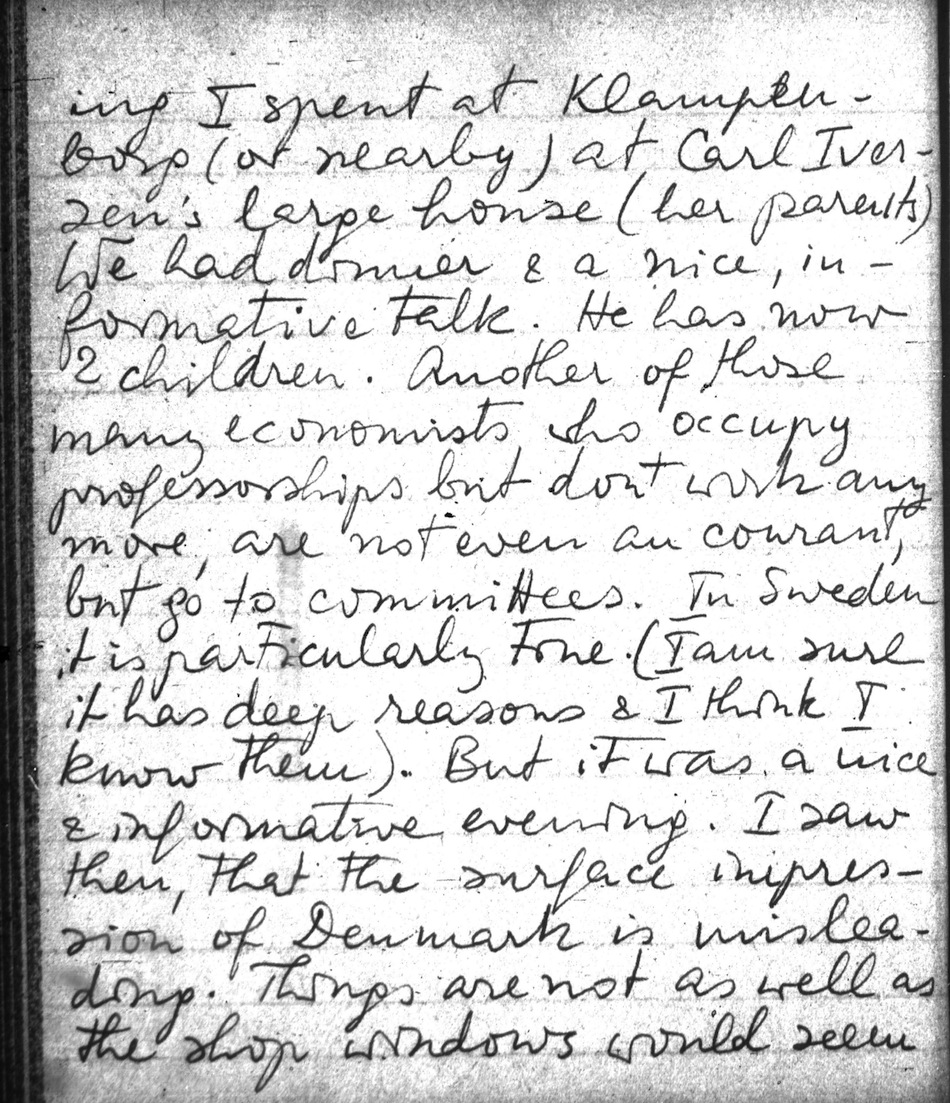 ing I spent at Klampen-
borg (or nearby) at Carl Iver-
sen's large house (her parents)
We had dinner & a nice, in-
formative talk. He has now
2 children. Another of those
many economists who occupy
professorships but don't work any
more, are not even au courant,
but go to committees. In Sweden
it is particularly true. (I am sure
it has deep reasons & I think I
know them). But it was a nice
& informative evening. I saw
then, that the surface impres-
sion of Denmark is mislea-
ding. Things are not as well as
the shop windows would seem